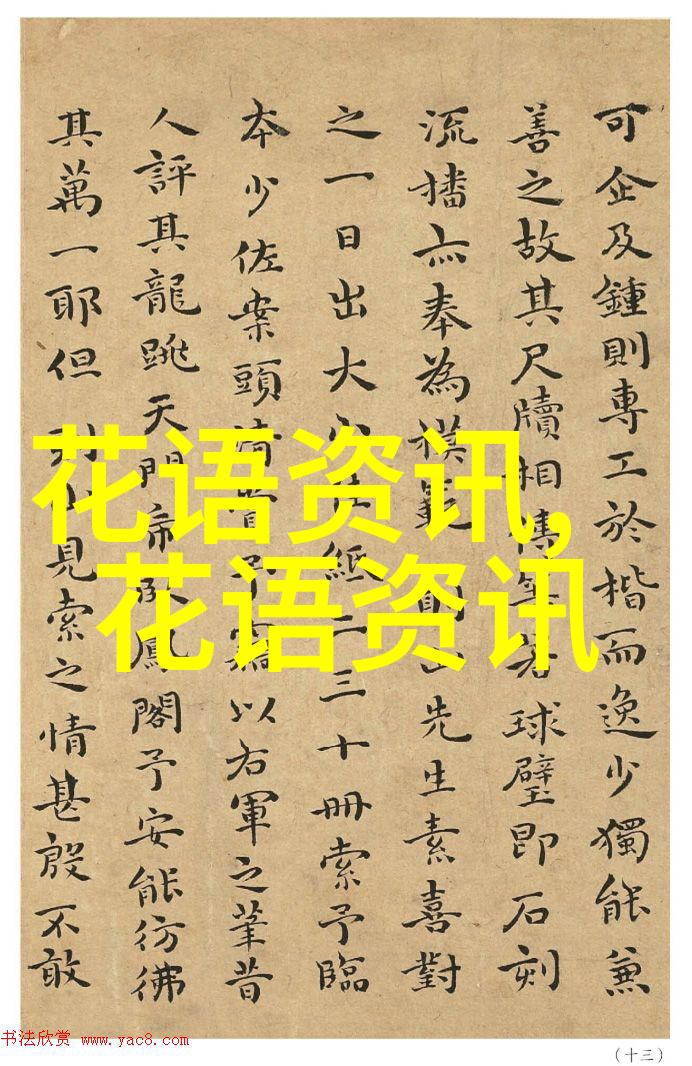 可企及鍾則專工於楷而逸少獨能兼
善之故其尺牘相傳筆若球璧即石刻
流播亦奉為模範山先生素喜對
之一日出大紙二三十冊索予臨
本少佐案頭予寫以右軍之筆昔
人評其龍跳天門鳳閣予安能彷彿
其萬一耶但見索之情甚殷不敢
花语资讯,
花语资讯
书法欣赏 www.yac8.com
（十三）